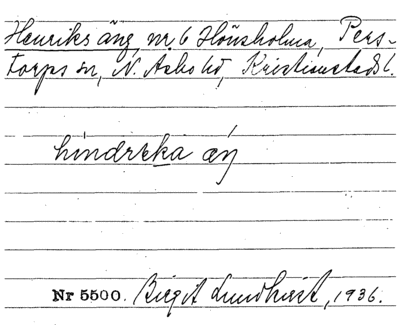 Henriks äng, nr 6 Hönsholma, Pers-
torps sn, N. Åsbo hd, Kristianstads l.
hindrəka æŋ
Nr 5500. Birgit Lundkvist, 1936.